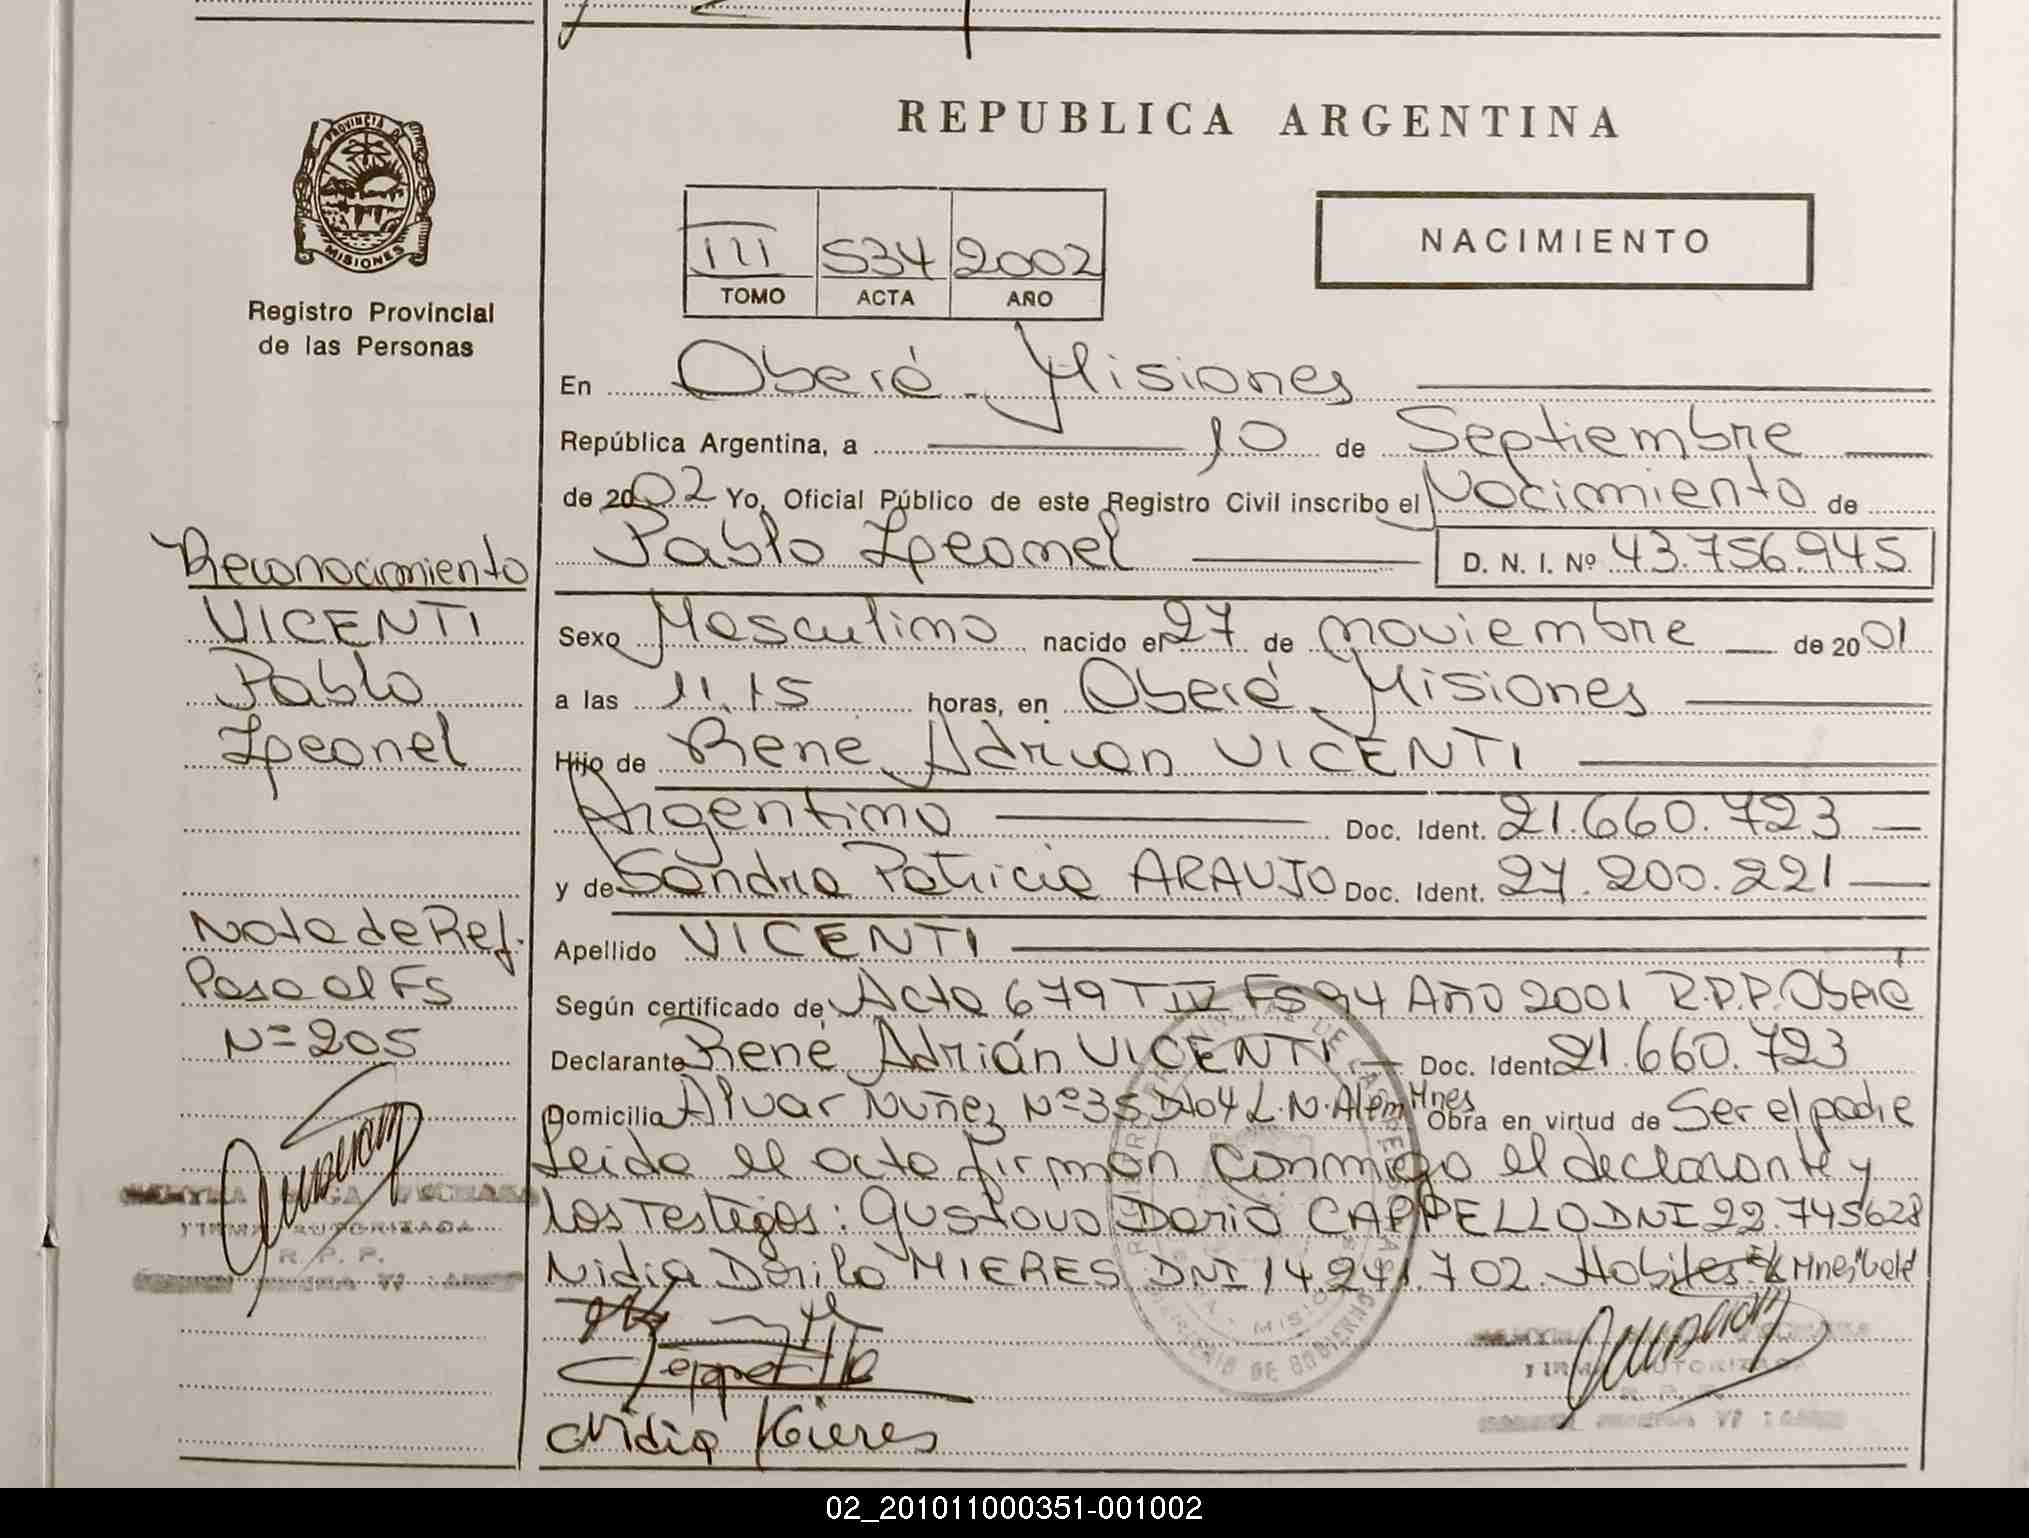 REPUBLICA ARGENTINA
PROVINCIA DE
MISIONES
Registro Provincial
de las Personas
III 534 2002
TOMO ACTA AÑO
NACIMIENTO
En Oberá - Misiones
República Argentina, a 10 de Septiembre
de 2002 Yo, Oficial Público de este Registro Civil inscribo el Nacimiento de
Pablo Leonel D. N. I. Nº 43.756.945
Sexo Masculino nacido el 27 de noviembre de 2001
a las 11.15 horas, en Oberá - Misiones
Hijo de René Adrian VICENTI
Argentino Doc. Ident. 21.660.723
y de Sandra Patricia ARAUJO Doc. Ident. 27.200.221
Apellido VICENTI
Según certificado de Acta 679 T IV Fs 94 Año 2001 R.P.P. Oberá
Declarante René Adrián VICENTI Doc. Ident. 21.660.723
Domicilio Alvar Nuñez Nº 35 D 104 L.N.Alem Mnes Obra en virtud de Ser el padre
Leida el acta firman conmigo el declarante y
los testigos: Gustavo Dario CAPPELLO DNI 22.745628
Nidia Dorila MIERES DNI 14.241.702. Habiles E/L Mnes "Vale"
Nidia Mieres
FIRMA AUTORIZADA
R. P. P.
Reconocimiento
VICENTI
Pablo
Leonel
Nota de Ref.
Pasa al Fs
Nº 205
FIRMA AUTORIZADA
R. P. P.
02_201011000351-001002